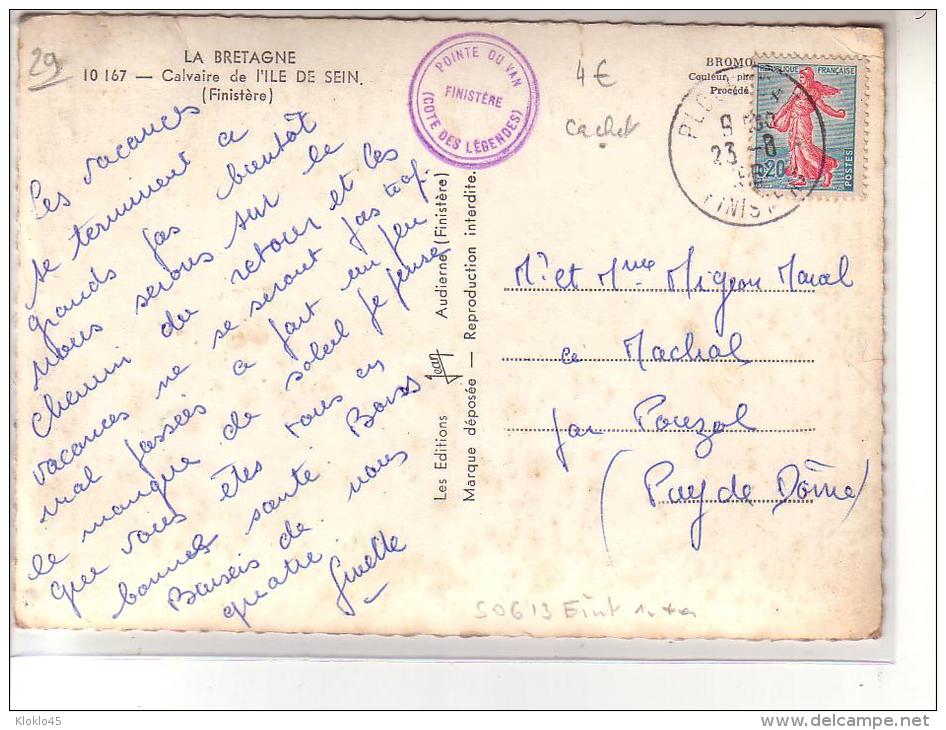 29
LA BRETAGNE
10 167 — Calvaire de l'ILE DE SEIN.
(Finistère)
POINTE DU VAN
FINISTÈRE
(COTE DES LÉGENDES)
4€
cachet
BROMO
Couleur,
Procédé
REPUBLIQUE FRANÇAISE
0,20
POSTES
9
23 -8
FINISTÈRE
Les vacances
se terminent à
grands pas bientôt
nous serons sur le
chemin du retour et les
vacances ne se seront pas trop
mal passées à part un peu
le manque de soleil je pense
que vous êtes tous en
bonnes santé. Bons
Baisers de nous
quatre.
Ginette
Les Editions Jean Audierne (Finistère)
Marque déposée — Reproduction interdite.
Mr et Mme Migeon Marcel
à Machal
par Pouzol
(Puy de Dôme)
S0613
Kloklo45
© delcampe.net